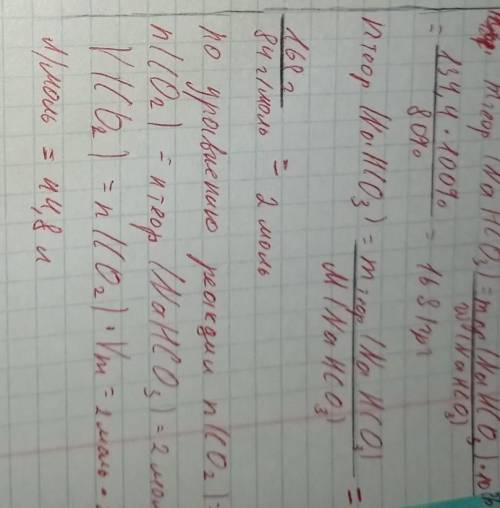 mтеор (NaHCO3) = mпр (NaHCO3) · 100%
w(NaHCO3)
= 134,4 · 100% = 168 (г)
80%
nтеор (NaHCO3) = mтеор (NaHCO3) =
M (NaHCO3)
168 г = 2 моль
84 г/моль
по уравнению реакции n(CO2) =
n(CO2) = nтеор (NaHCO3) = 2 мол
V(CO2) = n(CO2) · Vm = 2 моль ·
л/моль = 44,8 л